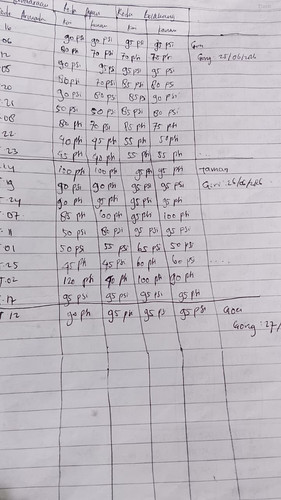 Kendaraan Roda Depan Roda Belakang
Kiri Kanan Kiri Kanan
06 90 psi 90 psi 95 psi 90 psi Gori
12 80 psi 70 psi 70 psi 70 psi Gong
05 90 psi 95 psi 95 psi 95 psi
20 50 psi 70 psi 85 psi 80 psi
21 90 psi 80 psi 85 psi 90 psi
08 50 psi 50 psi 85 psi 80 psi
22 80 psi 70 psi 85 psi 75 psi
23 40 psi 45 psi 55 psi 50 psi
45 psi 40 psi 55 psi 55 psi
14 100 psi 100 psi 95 psi 95 psi Taman
19 90 psi 90 psi 95 psi 95 psi Gori
24 90 psi 95 psi 95 psi 95 psi
07 85 psi 100 psi 95 psi 100 psi
11 50 psi 80 psi 95 psi 95 psi
01 50 psi 55 psi 65 psi 50 psi
25 45 psi 45 psi 60 psi 60 psi
02 120 psi 90 psi 100 psi 90 psi
17 95 psi 95 psi 95 psi 95 psi
T 12 90 psi 95 psi 95 psi 95 psi Gori
Gong : 27/